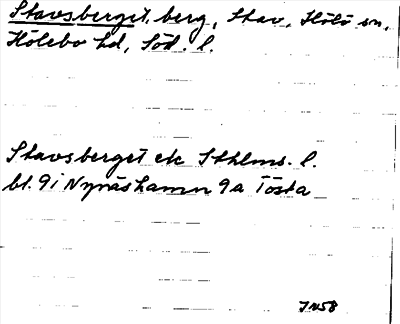 Stavsberget, berg, Stav, Hölö sn,
Hölebo hd, Söd. l.
Stavsberget ek Sthlms. l.
bl. 9i Nynäshamn 9a Tösta
JN58